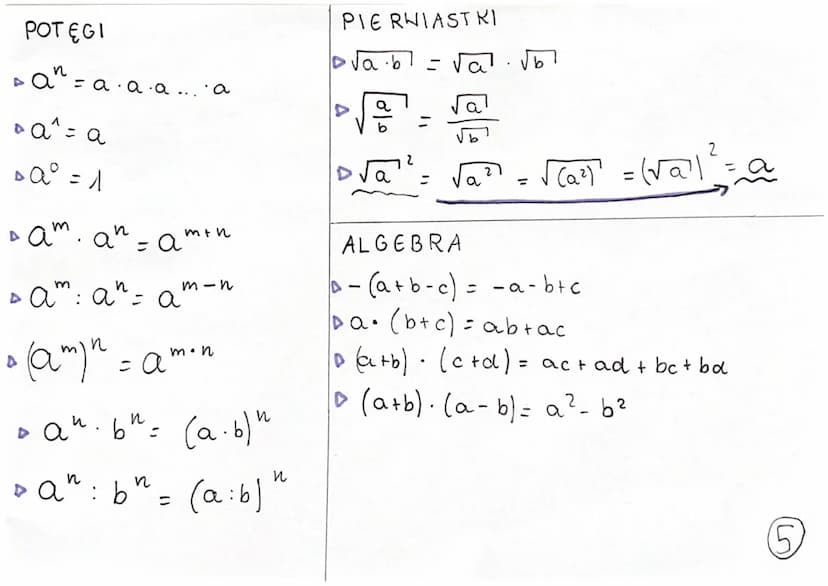 POTĘGI
aⁿ = a · a · a ... · a
a¹ = a
a⁰ = 1
aᵐ · aⁿ = aᵐ⁺ⁿ
aᵐ : aⁿ = aᵐ⁻ⁿ
(aᵐ)ⁿ = aᵐ·ⁿ
aⁿ · bⁿ = (a · b)ⁿ
aⁿ : bⁿ = (a : b)ⁿ
PIERWIASTKI
√(a · b) = √a · √b
√(a/b) = √a/√b
√a² = √(a²) = √((a²)) = (√a)² = a
ALGEBRA
-(a+b-c) = -a-b+c
a · (b+c) = ab+ac
(a+b) · (c+d) = ac+ad+bc+bd
(a+b) · (a-b) = a² - b²
5